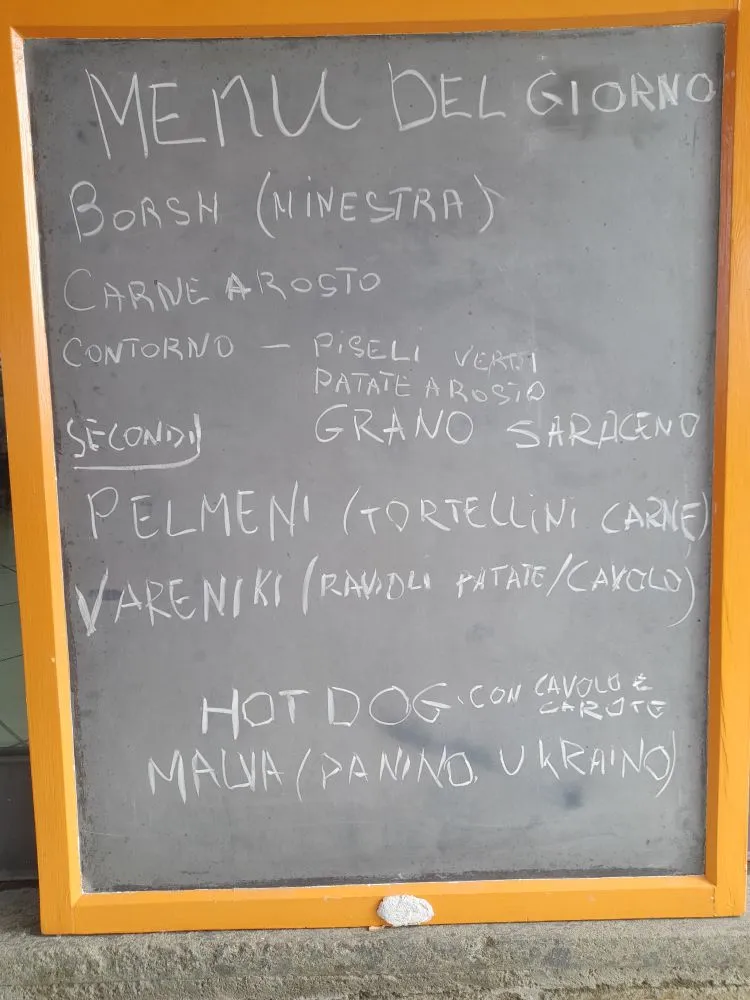 MENU DEL GIORNO
BORSH (MINESTRA)
CARNE AROSTO
CONTORNO — PISELI VERDI
PATATE AROSTO
SECONDI GRANO SARACENO
PELMENI (TORTELLINI CARNE)
VARENIKI (RAVIOLI PATATE/CAVOLO)
HOT DOG CON CAVOLO E
CAROTE
MALVA (PANINO UKRAINO)